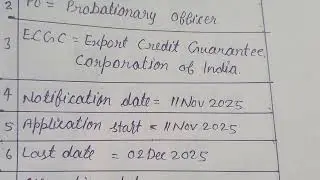 2 PO = Probationary Officer
3 ECGC = Export Credit Guarantee
Corporation of India.
4 Notification date = 11 Nov 2025
5 Application start = 11 Nov 2025
6 Last date = 02 Dec 2025